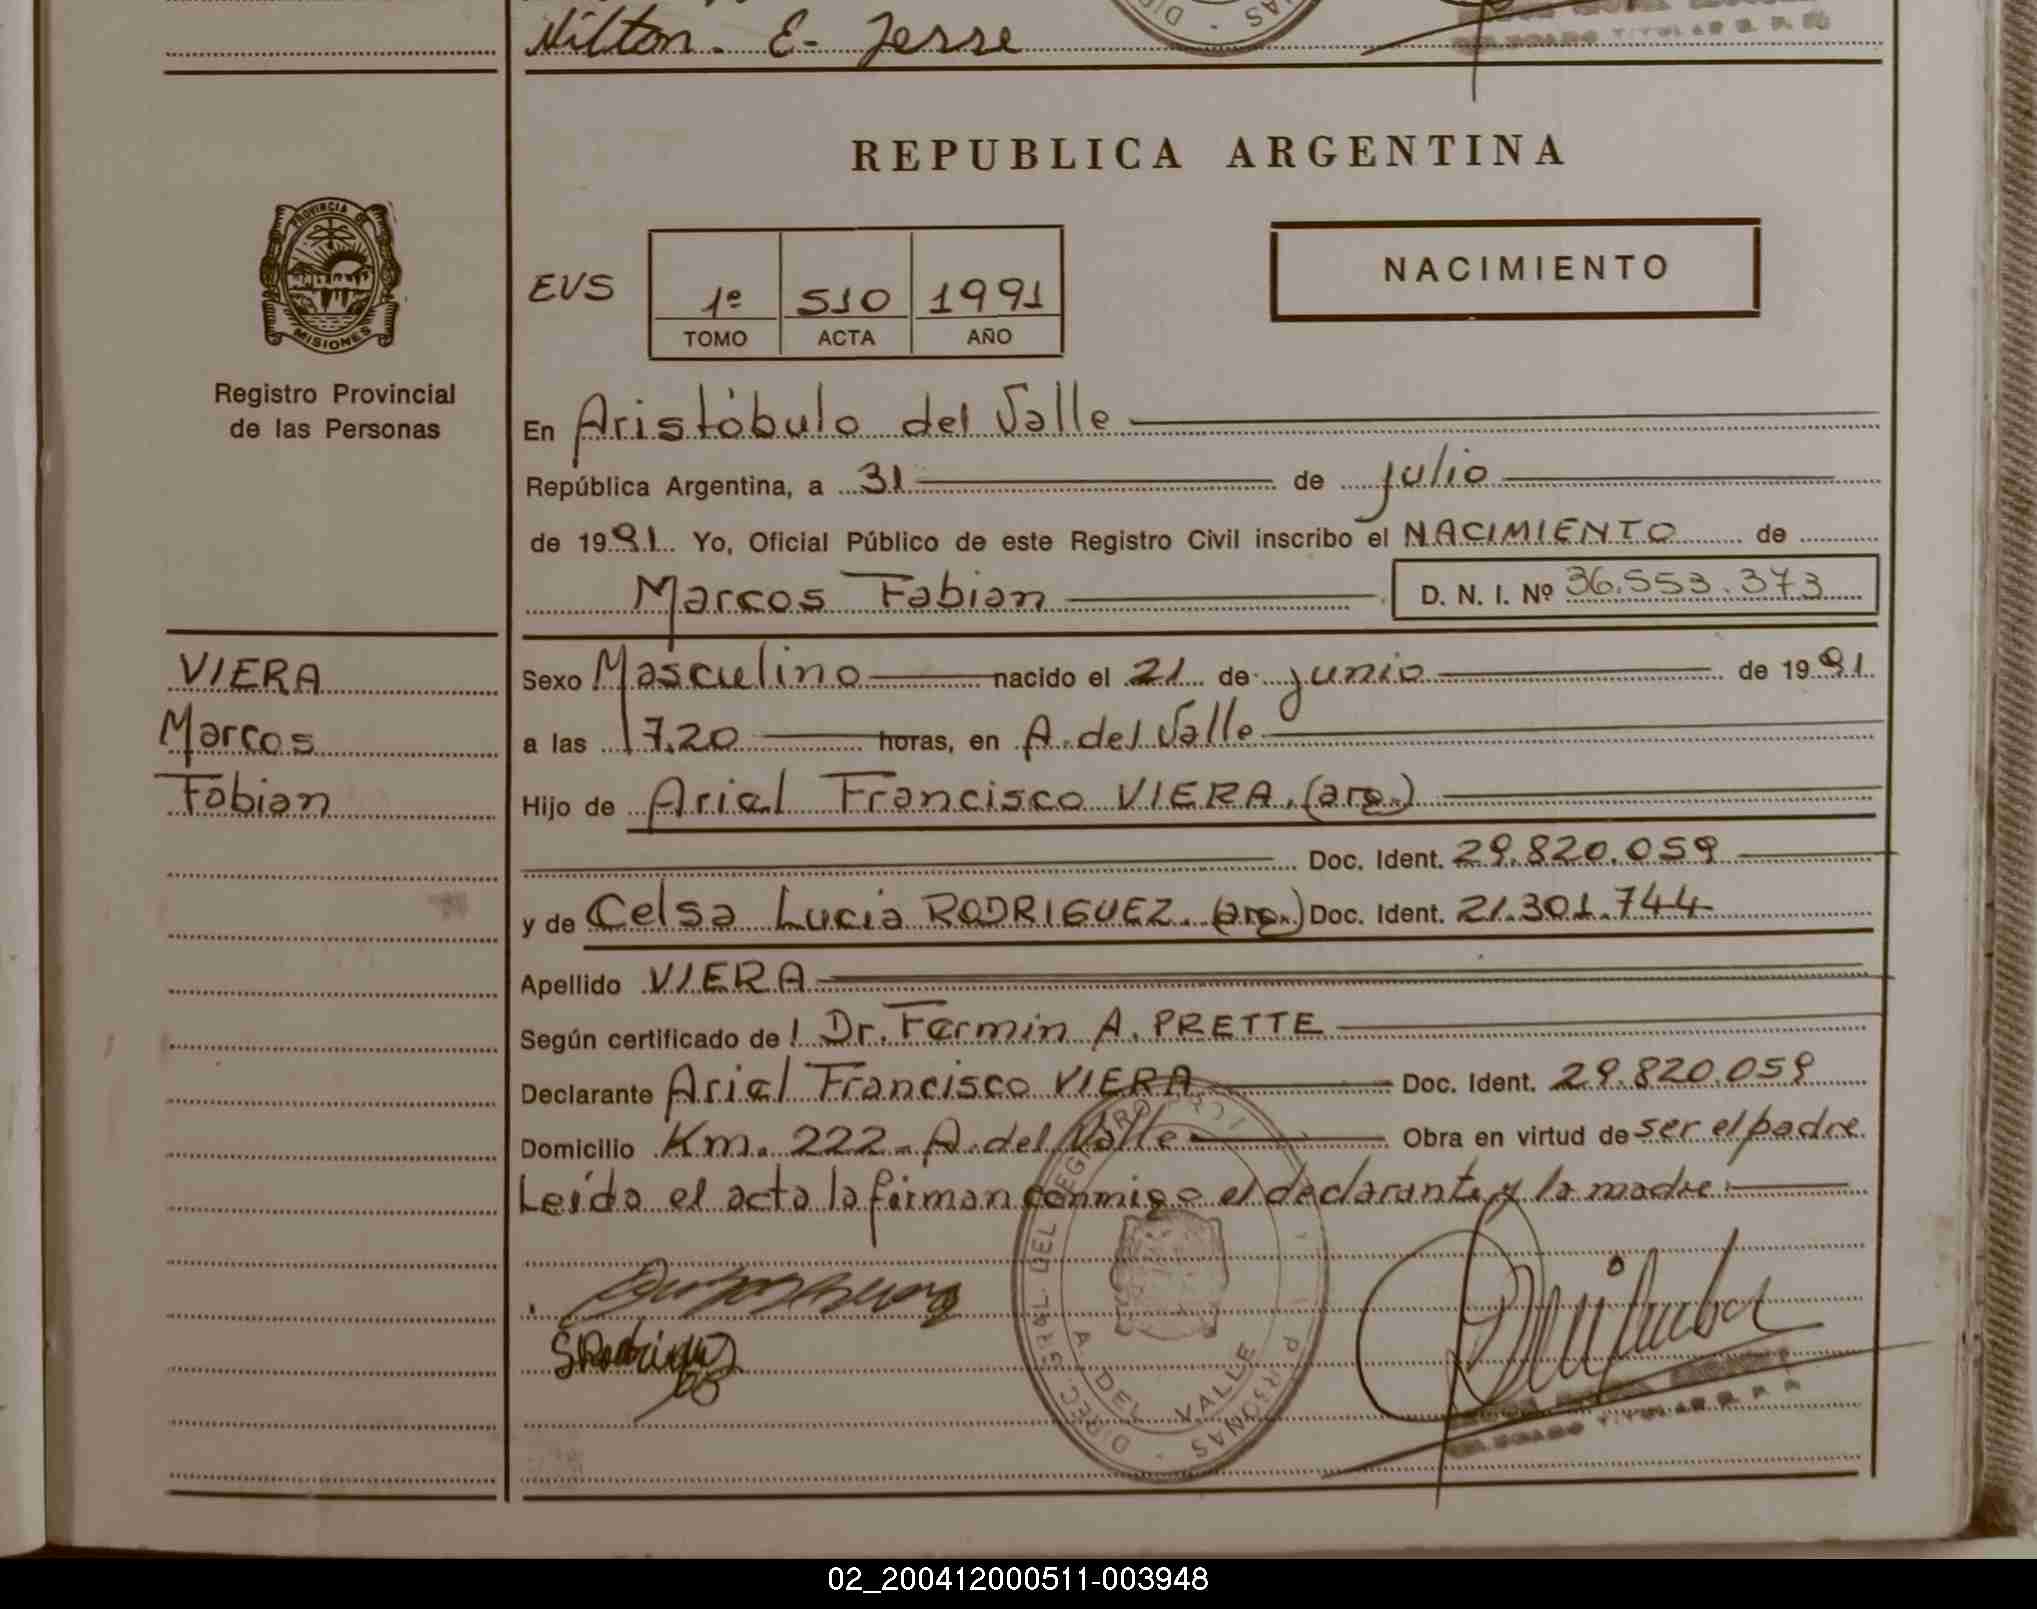 Nilton. E. Jesse
REPUBLICA ARGENTINA
PROVINCIA DE
MISIONES
Registro Provincial
de las Personas
EVS
1º 510 1991
TOMO ACTA AÑO
NACIMIENTO
En Aristóbulo del Valle
República Argentina, a 31 de julio
de 1991. Yo, Oficial Público de este Registro Civil inscribo el NACIMIENTO de
Marcos Fabian D. N. I. Nº 36.553.373
VIERA
Marcos
Fabian
Sexo Masculino nacido el 21 de junio de 1991
a las 17.20 horas, en A. del Valle
Hijo de Arial Francisco VIERA. (arg.)
Doc. Ident. 29.820.059
y de Celsa Lucia RODRIGUEZ. (arg.) Doc. Ident. 21.301.744
Apellido VIERA
Según certificado de l Dr. Fermin A. PRETTE
Declarante Arial Francisco VIERA Doc. Ident. 29.820.059
Domicilio Km. 222 - A. del Valle Obra en virtud de ser el padre
Leída el acta la firman conmigo el declarante y la madre.
DIREC. GRAL. DEL REGISTRO PERSONAS
A. DEL VALLE
DELEGADO TITULAR R. P.
02_200412000511-003948